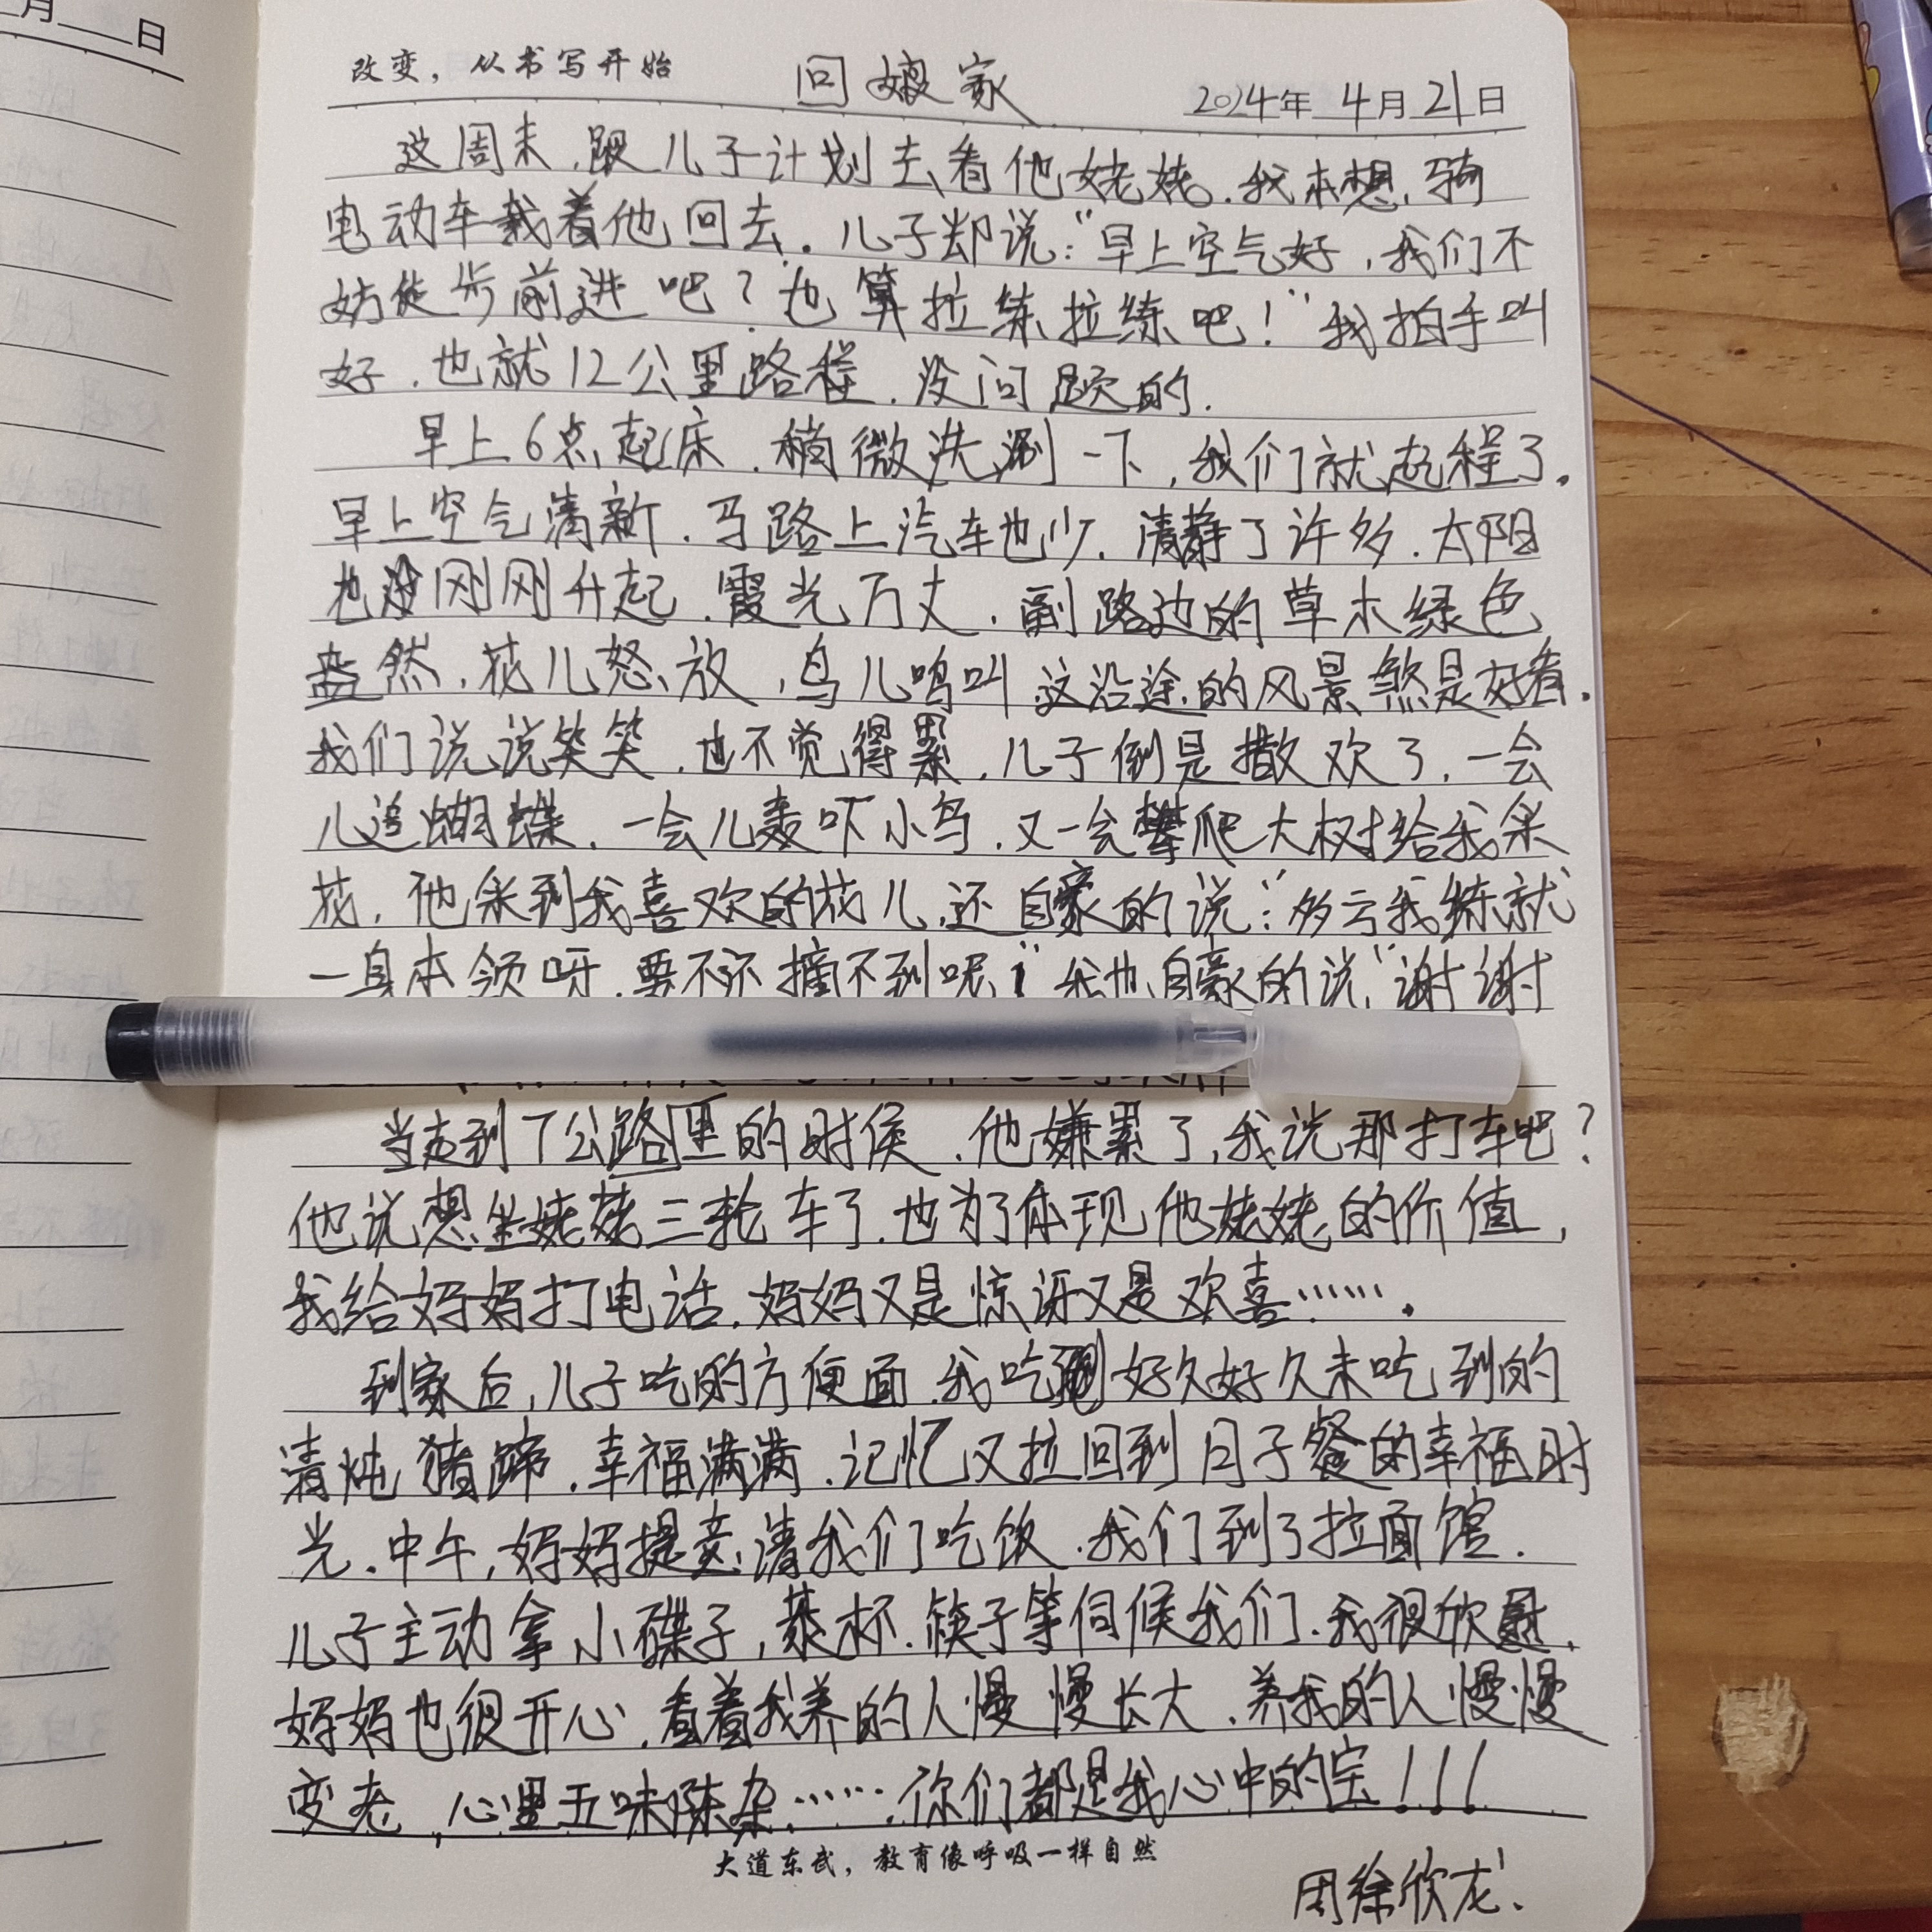 月 日
改变，从书写开始 回娘家 2024年 4月 21日
这周末，跟儿子计划去看他姥姥。我本想，骑
电动车载着他回去。儿子却说："早上空气好，我们不
妨徒步前进吧？也算拉练拉练吧！"我拍手叫
好，也就12公里路程，没问题的.
早上6点起床，稍微洗涮一下，我们就起程了。
早上空气清新，马路上汽车也少，清静了许多，太阳
也刚刚升起，霞光万丈，路边的草木绿色
盎然，花儿怒放，鸟儿鸣叫 这沿途的风景煞是好看。
我们说说笑笑，也不觉得累，儿子倒是撒欢了，一会
儿追蝴蝶，一会儿轰吓小鸟，又一会攀爬大树给我采
花，他采到我喜欢的花儿，还自豪的说："多亏我练就
一身本领呀，要不还摘不到呢！"我也自豪的说，"谢谢
当走到7公里的时侯，他嫌累了，我说那打车吧？
他说想坐姥姥三轮车了，也为了体现他姥姥的价值，
我给妈妈打电话，妈妈又是惊讶又是欢喜……。
到家后，儿子吃的方便面，我吃到好久好久未吃到的
清炖猪蹄，幸福满满，记忆又拉回到月子餐的幸福时
光。中午，妈妈提意请我们吃饭，我们到了拉面馆.
儿子主动拿小碟子，茶杯，筷子等伺候我们，我很欣慰，
妈妈也很开心，看着我养的人慢慢长大，养我的人慢慢
变老，心里五味陈杂……，你们都是我心中的宝！！！
大道东武，教育像呼吸一样自然
周徐欣龙、